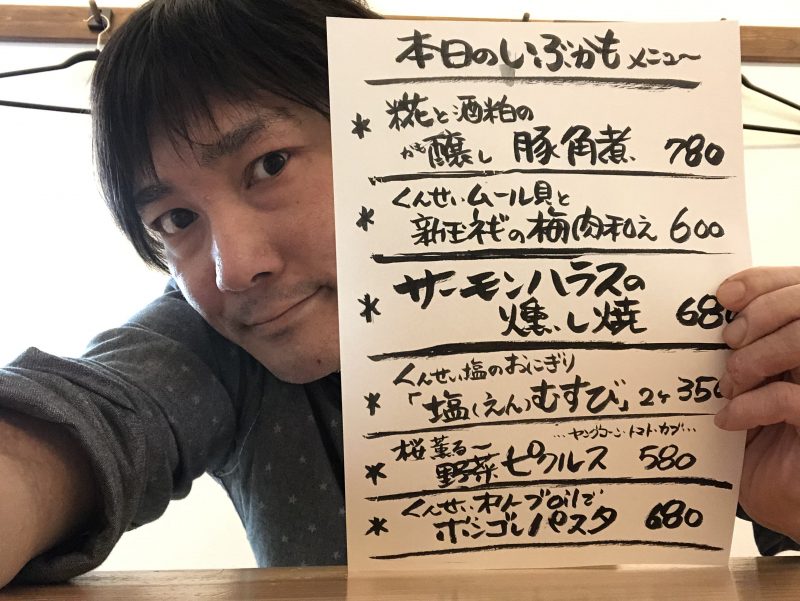 本日のいぶかもメニュ〜
* 糀と酒粕の
かも醸し 豚角煮 780
* くんせいムール貝と
新玉ネギの梅肉和え 600
* サーモンハラスの
燻し焼 680
* くんせい塩のおにぎり
「塩(えん)むすび」2ヶ 350
…ヤングコーン・トマト・カブ…
* 桜薫る〜
野菜ピクルス 580
* くんせいオリーブoilで
ボンゴレパスタ 680